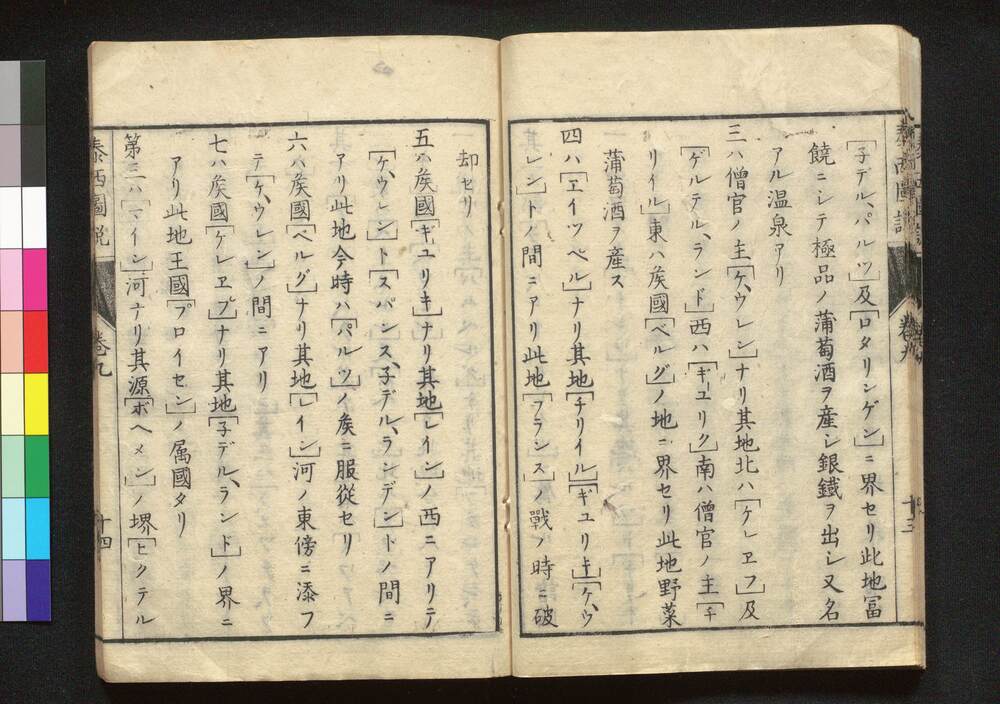 泰西圖説
卷九
十三
[子デル、パルツ]及[ロタリンゲン]ニ界セリ此地冨
饒ニシテ極品ノ蒲萄酒ヲ産シ銀鐵ヲ出シ又名
アル温泉アリ
三ハ僧官ノ主[ケ、ウレン]ナリ其地北ハ[ケレヱフ]及
[ゲルテル、ランド]西ハ[ギユリク]南ハ僧官ノ主[チ
リイル]東ハ矦國[ベルグ]ノ地ニ界セリ此地野菜
蒲萄酒ヲ産ス
四ハ[ヱイツベル]ナリ其地[チリイル][ギユリキ][ケ、ウ
レン]トノ間ニアリ此地[フランス]ノ戰ノ時ニ破
却セリ
五ハ矦國[ギユリキ]ナリ其地[レイン]ノ西ニアリテ
[ケ、ウレン]ト[スパンス、子デル、ランデン]トノ間ニ
アリ此地今時ハ[パルツ]ノ矦ニ服從セリ
六ハ矦國[ベルグ]ナリ其地[レイン]河ノ東傍ニ添フ
テ[ケ、ウレン]ノ間ニアリ
七ハ矦國[ケレヱプ]ナリ其地[子デル、ランド]ノ界ニ
アリ此地王國[プロイセン]ノ属國タリ
第三ハ[マイン]河ナリ其源[ボヘメン]ノ堺[ヒクテル
泰西圖説
卷九
十四